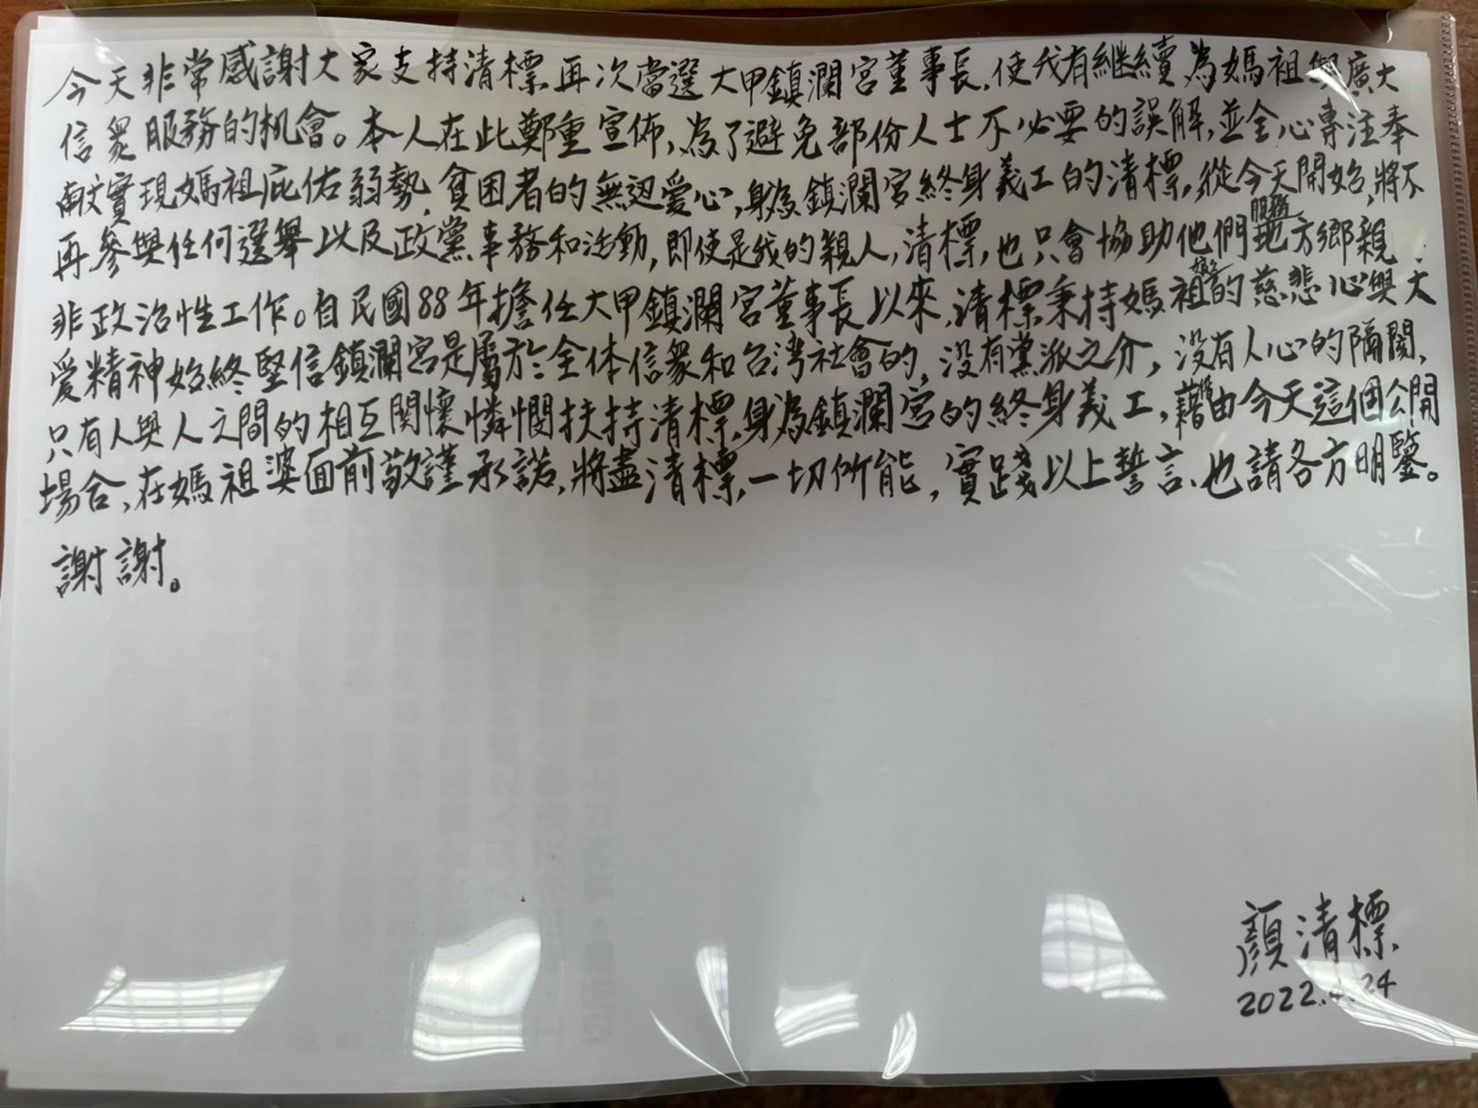 今天非常感謝大家支持清標再次當選大甲鎮瀾宮董事長,使我有継續為媽祖與廣大
信眾服務的机會。本人在此鄭重宣佈,為了避免部份人士不必要的誤解,並全心專注奉
獻實現媽祖庇佑弱勢,貧困者的無边愛心,身為鎮瀾宮終身義工的清標,從今天開始,將不
再參與任何選舉以及政黨事務和活動,即使是我的親人,清標,也只會協助他們服務地方鄉親
非政治性工作。自民國88年擔任大甲鎮瀾宮董事長以來,清標秉持媽祖婆的慈悲心與大
愛精神始終堅信鎮瀾宮是屬於全体信眾和台湾社會的,没有黨派之分,没有人心的隔閡,
只有人與人之間的相互関懷憐憫扶持清標,身為鎮瀾宮的終身義工,藉由今天這個公開
場合,在媽祖婆面前敬謹承諾,將盡清標,一切所能,實踐以上誓言、也請各方明鑒。
謝謝。
顏清標
2022.4.24